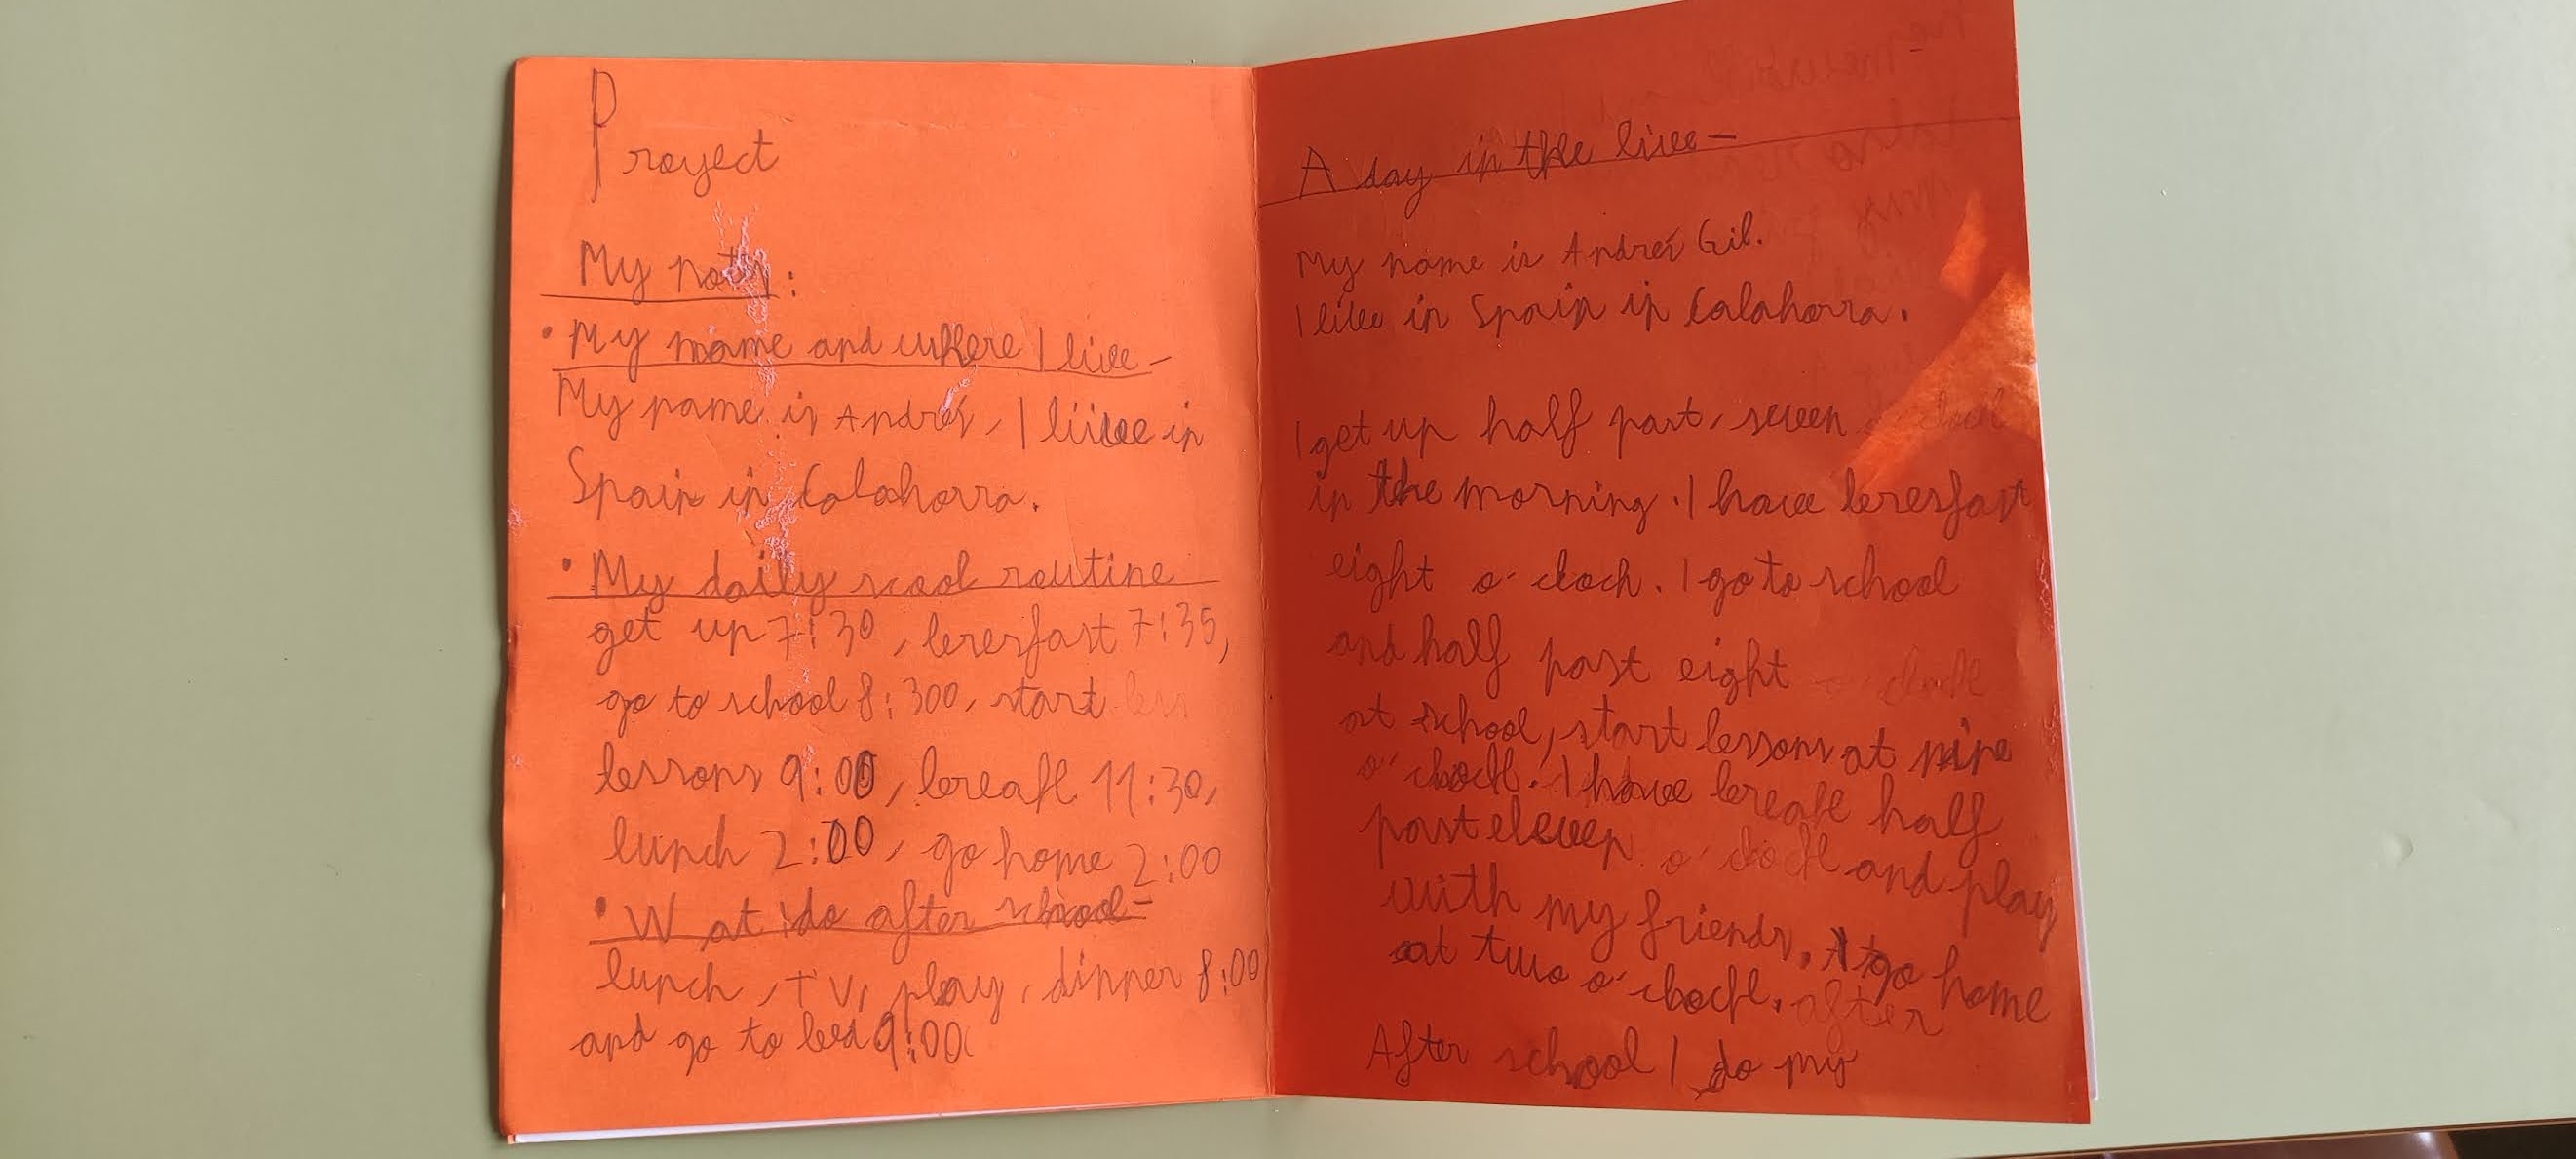 Proyect
My noty:
• My name and where I live -
My name is Andrés, I liivee in
Spain in Calahorra.
• My daily scool routine
get up 7:30, breresfast 7:35,
go to school 8:300, start less
lessons 9:00, break 11:30,
lunch 2:00, go home 2:00
• W at ido after school -
lunch, TV, play, dinner 8:00
and go to bed 9:00
A day in the live -
My name is Andrés Gil.
I live in Spain in Calahorra.
I get up half past, seven o'clock
in the morning. I have breresfast
eight o'clock. I go to school
and half past eight o'clock
at school, start lessons at nine
o'clock. I have break half
past eleven o'clock and play
with my friends. I go home
at two o'clock. after
After school I do my